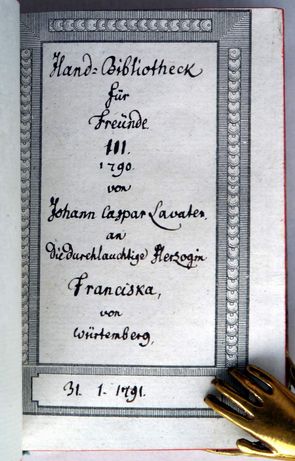 Hand=Bibliotheck
für
Freünde.
III.
1790.
von
Johann Caspar Lavater,
an
die durchlauchtige Herzogin
Franciska,
von
Würtemberg,
31. 1. 1791.